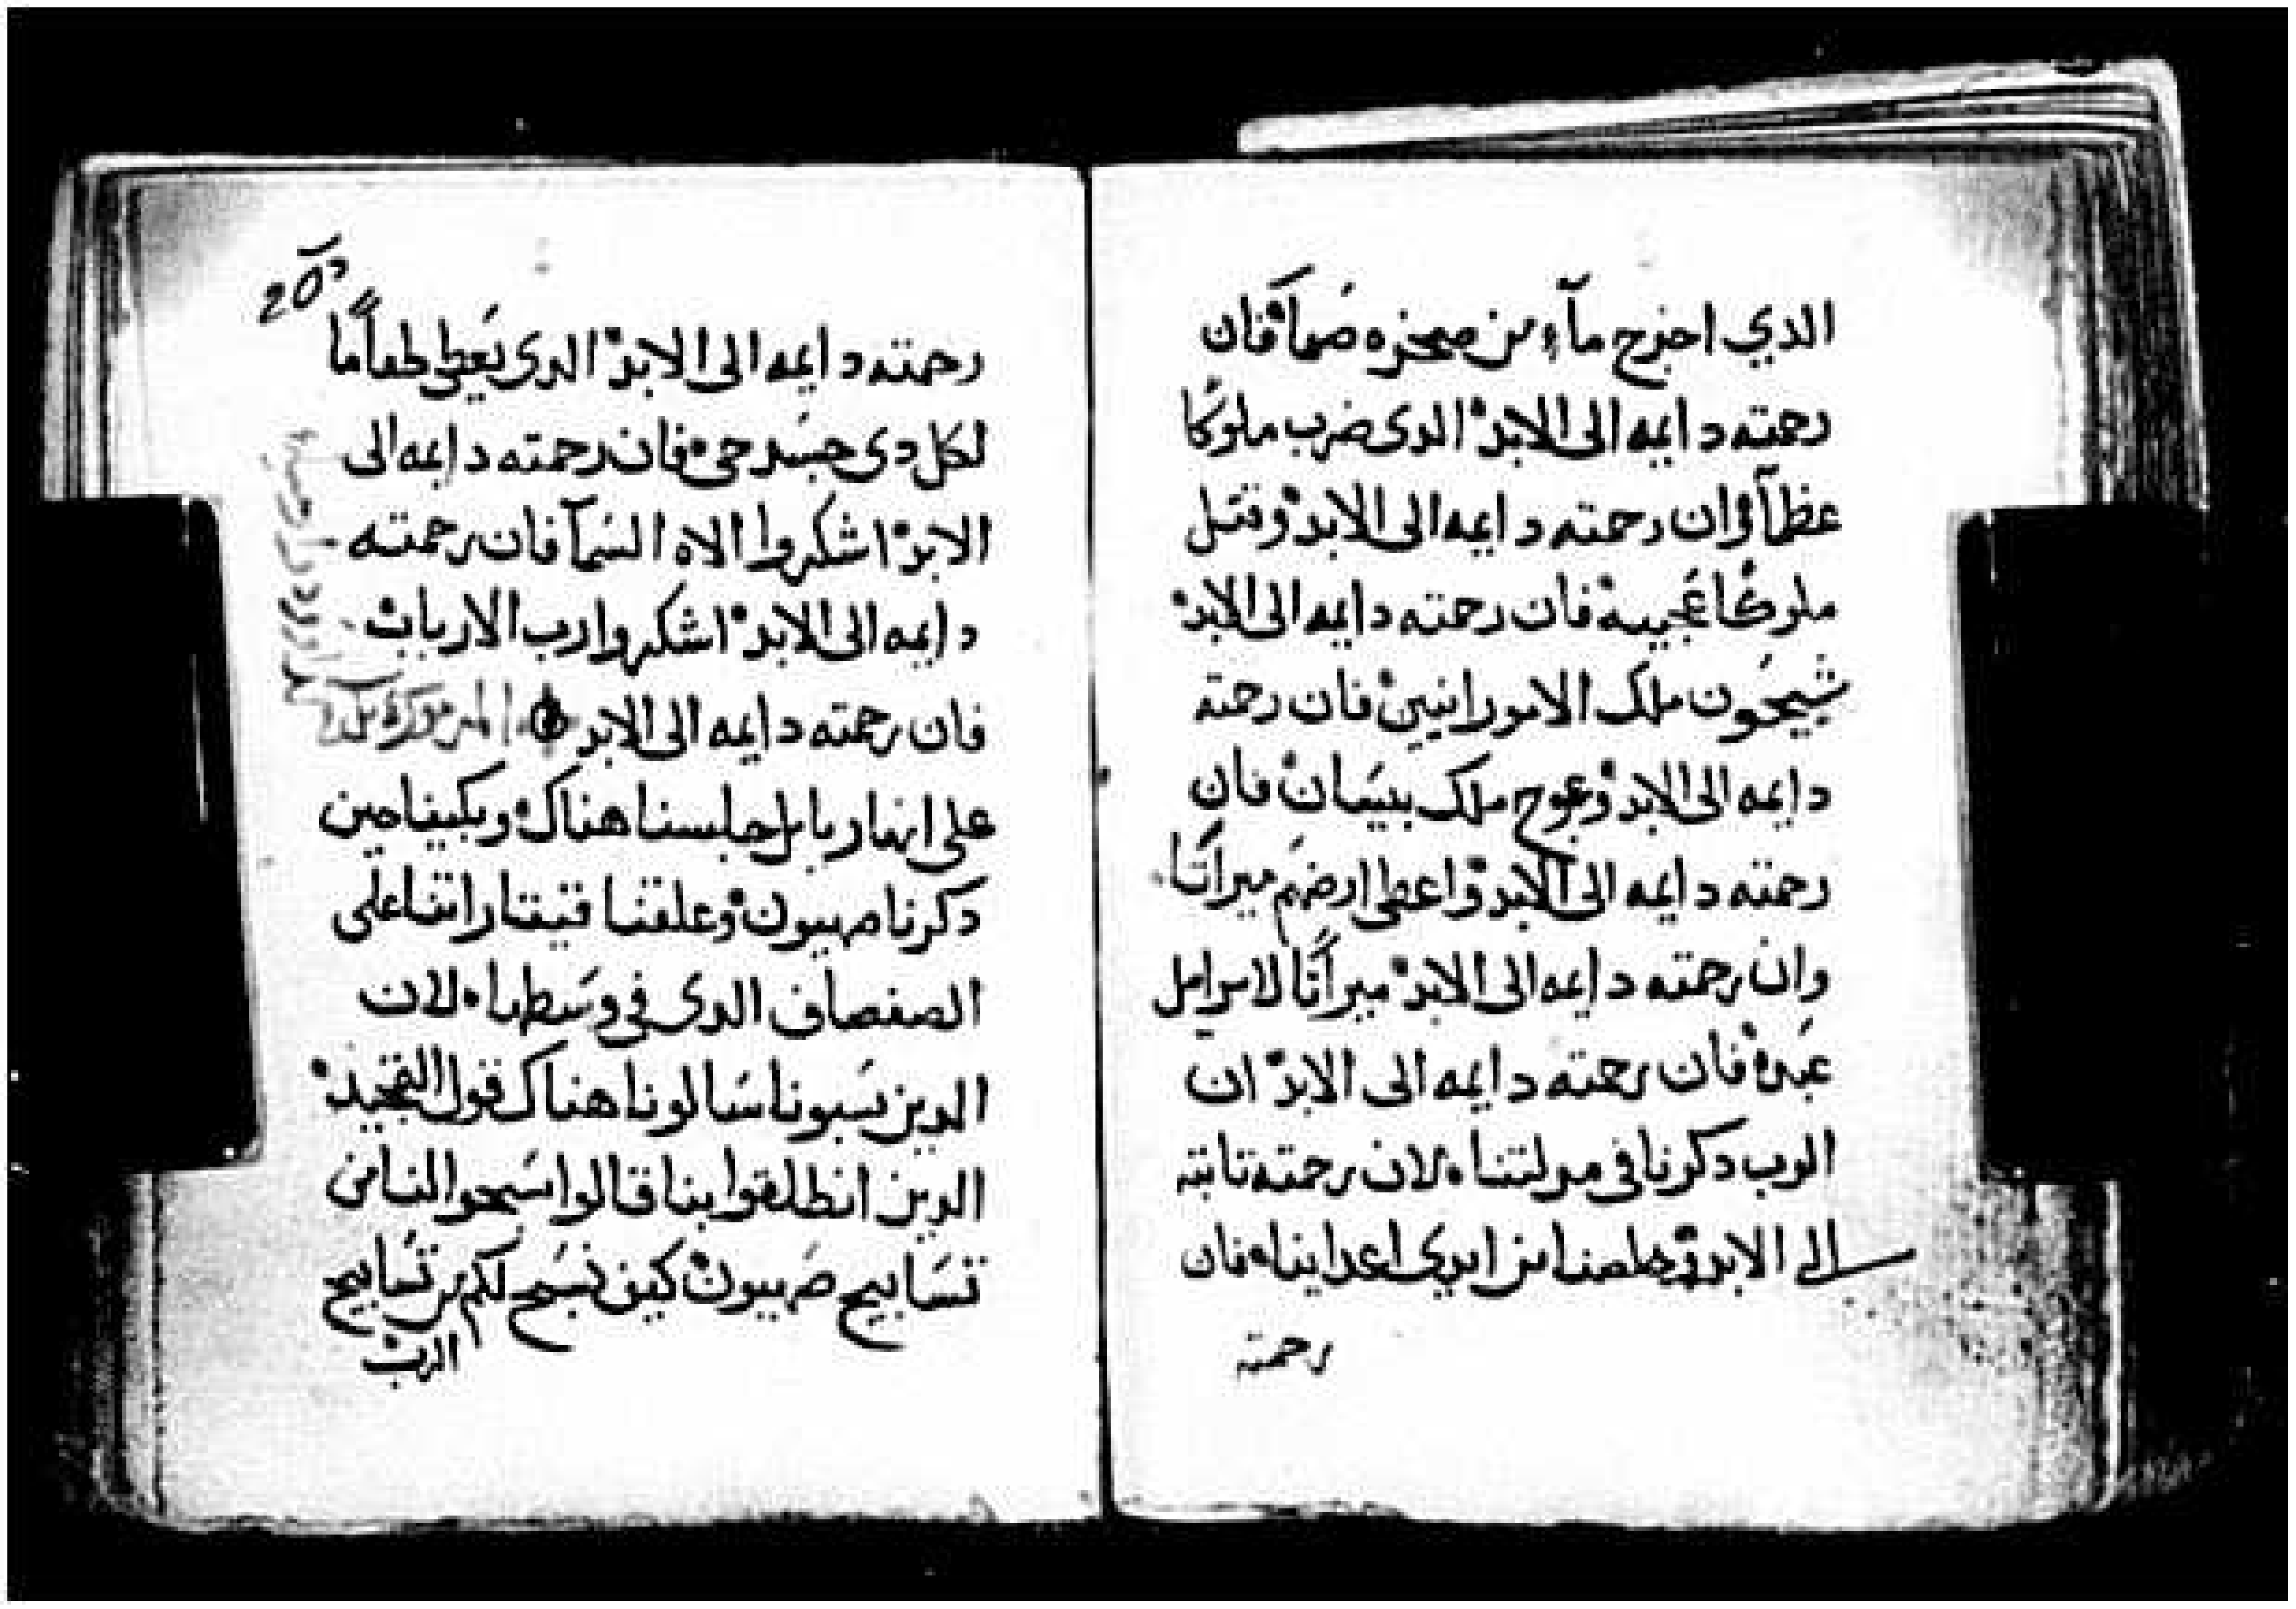 الدي اخرج مآء من صخره صمآ فان
رحمته دايمه الى الابد الدى ضرب ملوكا
عظمآ فان رحمته دايمه الى الابد وقتل
ملوكًا عجيبه فان رحمته دايمه الى الابد
شيحون ملك الامورانيين فان رحمته
دايمه الى الابد وعوج ملك بيسان فان
رحمته دايمه الى الابد واعطى ارضهم ميراتًا
وان رحمته دايمه الى الابد ميراتًا لاسراييل
عبده فان رحمته دايمه الى الابد ان
الرب دكرنا فى مدلتنا لان رحمته تابته
الى الابد وخلصنا من ايدي اعداينا فان
رحمته
رحمته دايمه الى الابد الدى يعطى طعامًا
لكل دى جسد حي فان رحمته دايمه الى
الابد اشكروا الاه السمآ فان رحمته
دايمه الى الابد اشكروا رب الارباب
فان رحمته دايمه الى الابد المزمور
على انهار بابل جلسنا هناك وبكينا حين
دكرنا صهيون وعلقنا قيتاراتنا على
الصفصاف الدى فى وسطها لان
الدين سبونا سالونا هناك قول التمجيد
الدين انطلقوا بنا قالوا سبحوا لنا من
تسابيح صهيون كيف نسبح لكم من تسابيح
الرب